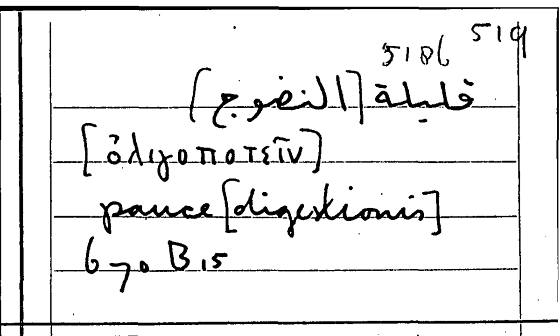 519
5186
قليلة [النضوج]
[ὀλιγοποτεῖν]
pauce [digestionis]
670 B 15